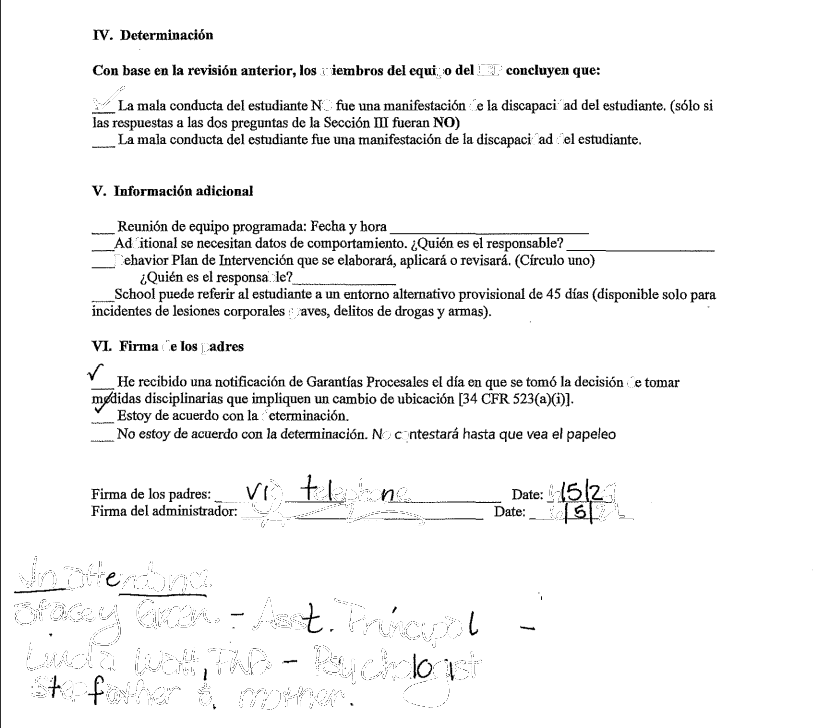 IV. Determinación
Con base en la revisión anterior, los miembros del equipo del IEP concluyen que:
✓ La mala conducta del estudiante NO fue una manifestación de la discapacidad del estudiante. (sólo si
las respuestas a las dos preguntas de la Sección III fueran NO)
___ La mala conducta del estudiante fue una manifestación de la discapacidad del estudiante.
V. Información adicional
___ Reunión de equipo programada: Fecha y hora ___
___ Additional se necesitan datos de comportamiento. ¿Quién es el responsable? ___
___ Behavior Plan de Intervención que se elaborará, aplicará o revisará. (Círculo uno)
¿Quién es el responsable? ___
___ School puede referir al estudiante a un entorno alternativo provisional de 45 días (disponible solo para
incidentes de lesiones corporales graves, delitos de drogas y armas).
VI. Firma de los padres
✓ He recibido una notificación de Garantías Procesales el día en que se tomó la decisión de tomar
medidas disciplinarias que impliquen un cambio de ubicación [34 CFR 523(a)(i)].
✓ Estoy de acuerdo con la determinación.
___ No estoy de acuerdo con la determinación. No contestará hasta que vea el papeleo
Firma de los padres: via telephone Date:
Firma del administrador: Date:
In attendance
Stacey Green - Asst. Principal -
Linda Watt, PhD - Psychologist
Stepfather & mother.